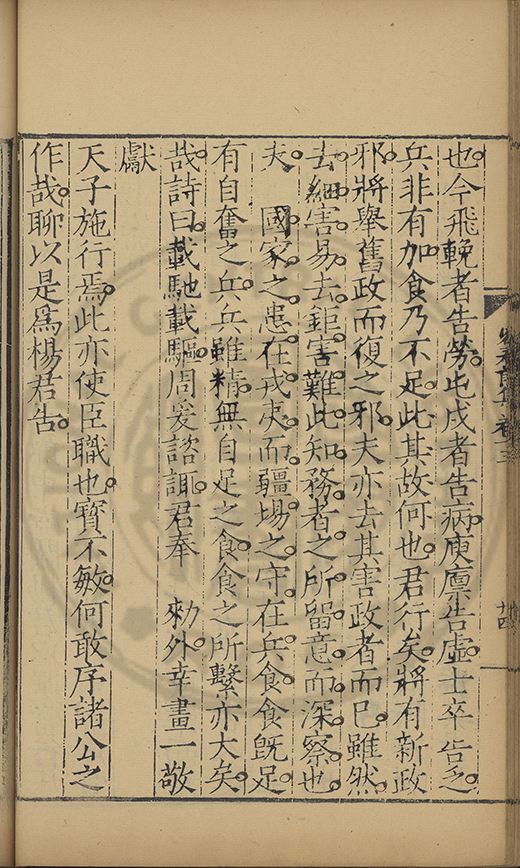 也今飛輓者告勞屯戍者告病庾廪告虛士卒告乏
兵非有加食乃不足此其故何也君行矣將有新政
邪將舉舊政而復之邪夫亦去其害政者而巳雖然
去細害易去鉅害難此知務者之所留意而深察也
夫　國家之患在戎夷而疆埸之守在兵食食旣足
有自奮之兵兵雖精無自足之食食之所繫亦大矣
哉詩曰載馳載驅周爰諮諏君奉　勑外幸畫一敬
獻
天子施行焉此亦使臣職也寳不敏何敢序諸公之
作哉聊以是爲楊君告
卷三
十四